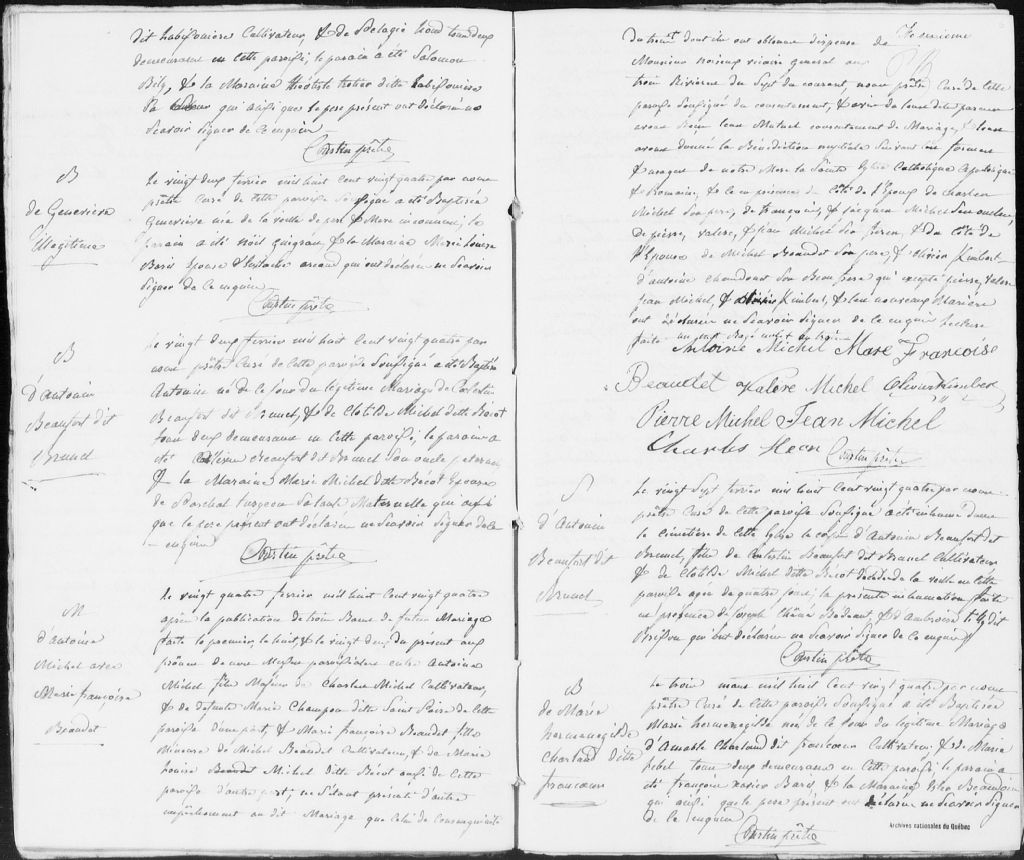 dit habifouiere Cultivateur, & de Pelagie houd tous deux
demeurant en cette paroisse, le parain a été Solomon
Bely, & la Maraine théotiste trotier ditte habifouiere
Sa Soeur qui ainsi que le pere présent ont déclaré ne
Scavoir Signer de ce enquis
Courtin prêtre
B
de Genevieve
illegitime
Le vingt deux fevrier mil huit Cent vingt quatre par nous
prêtre Curé de Cette paroisse Soussigné a été Baptisée
Genevieve née de la veille de pere & Mere inconnus; le
parain a été Noël guignan & la Maraine Marie Louise
Baris Epouse d'Eustache arcand qui ont déclarés ne Scavoir
Signer de Ce enquis
Courtin prêtre
B
d'Antoine
Beaufort dit
Brunel
Le vingt deux fevrier mil huit Cent vingt quatre par
nous prêtre Curé de Cette paroisse Soussigné a été Baptisé
Antoine né de Ce jour du légitime Mariage de Celestin
Beaufort dit Brunel, & de Clotilde Michel ditte Bécot
tous deux demeurans en Cette paroisse; le parain a
été Olivier Beaufort dit Brunel Son oncle paternel,
& la Maraine Marie Michel ditte Bécot Epouse
de turgeon Sa tante Maternelle qui ainsi
que le pere présent ont déclarés ne Scavoir Signer de Ce
enquis
Courtin prêtre
M
d'Antoine
Michel avec
Marie françoise
Beaudet
Le vingt quatre fevrier mil huit Cent vingt quatre
après la publication de trois Bans de futur Mariage
faite le premier, le huit, & le vingt deux du présent aux
prônes de nos Messes paroissiales entre Antoine
Michel fils Majeur de Charles Michel Cultivateur,
& de defunte Marie Champou ditte Saint Paire de Cette
paroisse d'une part, & Marie françoise Beaudet fille
Mineure de Michel Beaudet Cultivateur, & de Marie
Louise Michel ditte Bécot aussi de Cette
paroisse d'autre part; ne S'étant présenté d'autre
empêchement au dit Mariage que Celui de Consanguinité
du trois dont ils ont obtenu dispense de
Monsieur Noiseux vicaire general aux
trois Rivieres du Sept du courant, nous prêtre Curé de Cette
paroisse Soussigné du consentement, & avis de leurs dits parens
avons reçu leur Mutuel consentement de Mariage, & leur
avons donné la Benediction nuptiale Suivant les formes
& usages de notre Mere la Sainte Eglise Catholique Apostolique
& Romaine, & le en présence du Côté de l'Epoux de Charles
Michel Son pere, de françois, & Jacques Michel Ses oncles,
de pierre, valere, & jean Michel Ses freres, & du Côté de
l'Epouse de Michel Beaudet Son pere, & olivier Kimbert
d'antoine Son Beau frere qui excepté pierre, valere
Jean Michel, & olivier Kimbert, & les nouveaux Mariés
ont déclarés ne Scavoir Signer de Ce enquis lecture
faite
Antoine Michel Mare Francoise
Beaudet Valere Michel Olivier Kimber
Pierre Michel Jean Michel
Charles Heon Courtin prêtre
S
d'Antoine
Beaufort dit
Brunel
Le vingt Sept fevrier mil huit Cent vingt quatre par nous
prêtre Curé de Cette paroisse Soussigné a été inhumé dans
le cimétière de Cette Eglise le corps d'Antoine Beaufort dit
Brunel, fils de Celestin Beaufort dit Brunel Cultivateur
& de Clotilde Michel ditte Bécot decédé la veille en Cette
paroisse agé de quatre jours; la présente inhumation faite
en présence de Joseph Bedeau, & d'Ambroise dit
Brisson qui ont déclarés ne Scavoir Signer de Ce enquis
Courtin prêtre
B
de Marie
hermenegilde
Charland ditte
francoeur
Le trois mars mil huit Cent vingt quatre par nous
prêtre Curé de Cette paroisse Soussigné a été Baptisée
Marie hermenegilde née de Ce jour du légitime Mariage
d'Amable Charland dit francoeur Cultivateur, & de Marie
Lebel tous deux demeurans en Cette paroisse; le parain a
été françois xavier Baril, & la Maraine Beaudoin
qui ainsi que le pere présent ont déclarés ne Scavoir Signer
de Ce enquis
Courtin prêtre
Archives nationales du Québec